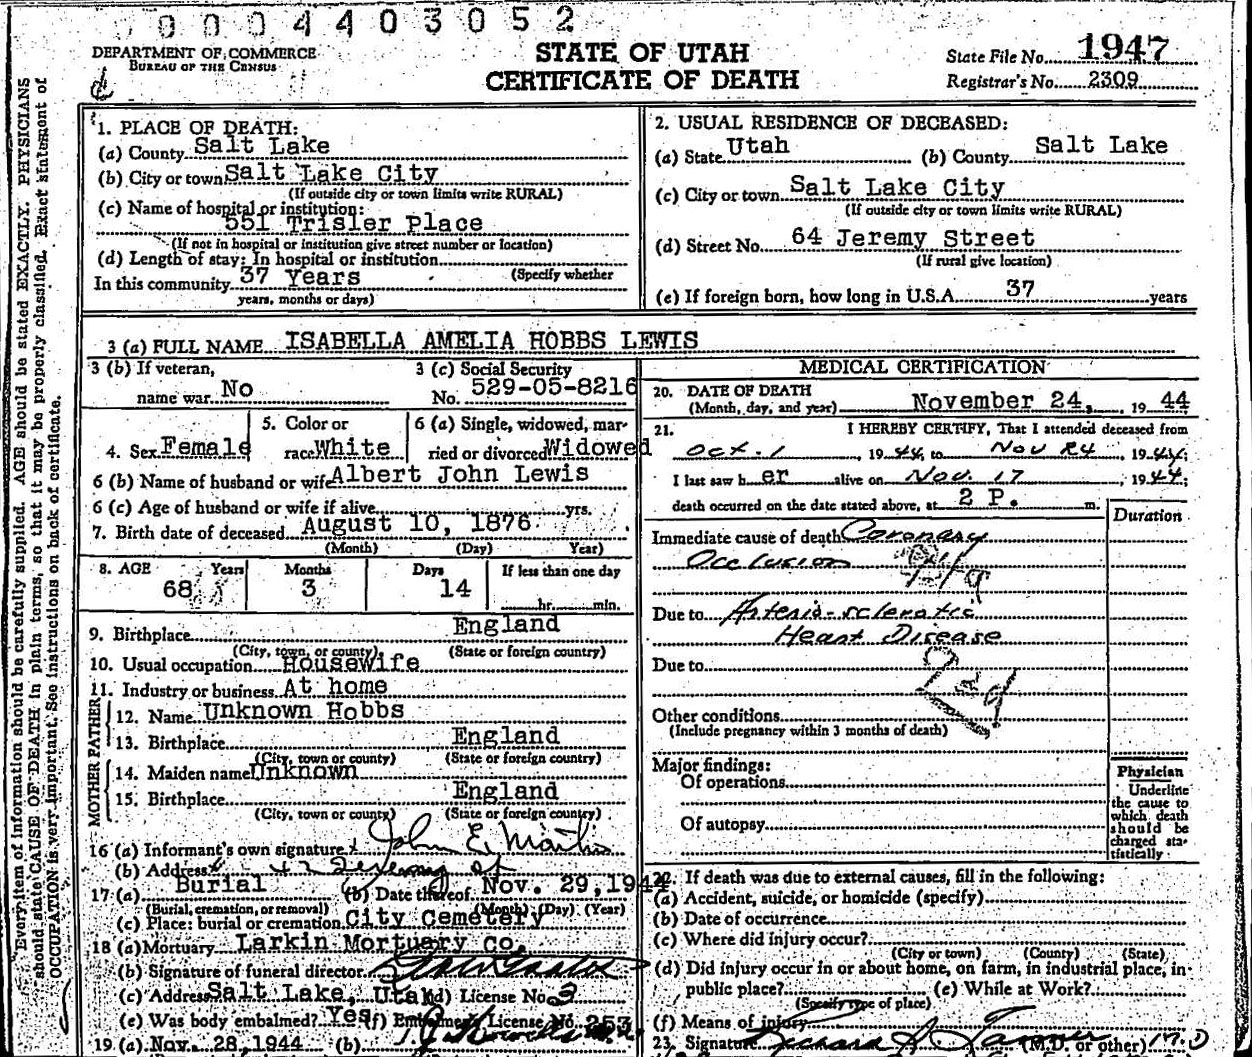 0004403052
DEPARTMENT OF COMMERCE
BUREAU OF THE CENSUS
STATE OF UTAH
CERTIFICATE OF DEATH
State File No. 1947
Registrar's No. 2309
Every item of information should be carefully supplied. AGE should be stated EXACTLY. PHYSICIANS
should state CAUSE OF DEATH in plain terms, so that it may be properly classified. Exact statement of
OCCUPATION is very important. See instructions on back of certificate.
1. PLACE OF DEATH:
(a) County Salt Lake
(b) City or town Salt Lake City
(If outside city or town limits write RURAL)
(c) Name of hospital or institution:
551 Trisler Place
(If not in hospital or institution give street number or location)
(d) Length of stay: In hospital or institution
In this community 37 Years (Specify whether
years, months or days)
2. USUAL RESIDENCE OF DECEASED:
(a) State Utah (b) County Salt Lake
(c) City or town Salt Lake City
(If outside city or town limits write RURAL)
(d) Street No. 64 Jeremy Street
(If rural give location)
(e) If foreign born, how long in U.S.A. 37 years
3 (a) FULL NAME ISABELLA AMELIA HOBBS LEWIS
3 (b) If veteran,
name war No
3 (c) Social Security
No. 529-05-8216
4. Sex Female
5. Color or
race White
6 (a) Single, widowed, mar-
ried or divorced Widowed
6 (b) Name of husband or wife Albert John Lewis
6 (c) Age of husband or wife if alive yrs.
7. Birth date of deceased August 10, 1876
(Month) (Day) Year)
8. AGE Years Months Days If less than one day
68 3 14 hr. min.
9. Birthplace England
(City, town, or county) (State or foreign country)
10. Usual occupation Housewife
11. Industry or business At home
FATHER
12. Name Unknown Hobbs
13. Birthplace England
(City, town or county) (State or foreign country)
MOTHER
14. Maiden name Unknown
15. Birthplace England
(City, town or county) (State or foreign country)
16 (a) Informant's own signature John E Martin
(b) Address Jeremy St
17 (a) Burial (b) Date thereof Nov. 29, 1944
(Burial, cremation, or removal) (Month) (Day) (Year)
(c) Place: burial or cremation City Cemetery
18 (a) Mortuary Larkin Mortuary Co.
(b) Signature of funeral director
(c) Address Salt Lake, Utah (d) License No. 3
(e) Was body embalmed? Yes (f) Embalmer's License No. 253
19 (a) Nov. 28, 1944 (b)
MEDICAL CERTIFICATION
20. DATE OF DEATH
(Month, day, and year) November 24, 1944
21. I HEREBY CERTIFY, That I attended deceased from
Oct. 1, 1944, to Nov 24, 1944;
I last saw her alive on Nov. 17, 1944;
death occurred on the date stated above, at 2 P. m.
Duration
Immediate cause of death Coronary
Occlusion
Due to Arterio-sclerotic
Heart Disease
Due to
Other conditions
(Include pregnancy within 3 months of death)
Major findings:
Of operations
Of autopsy
Physician
Underline
the cause to
which death
should be
charged sta-
tistically
22. If death was due to external causes, fill in the following:
(a) Accident, suicide, or homicide (specify)
(b) Date of occurrence
(c) Where did injury occur?
(City or town) (County) (State)
(d) Did injury occur in or about home, on farm, in industrial place, in
public place? (e) While at Work?
(Specify type of place)
(f) Means of injury
23. Signature Richard (M.D. or other) M.D